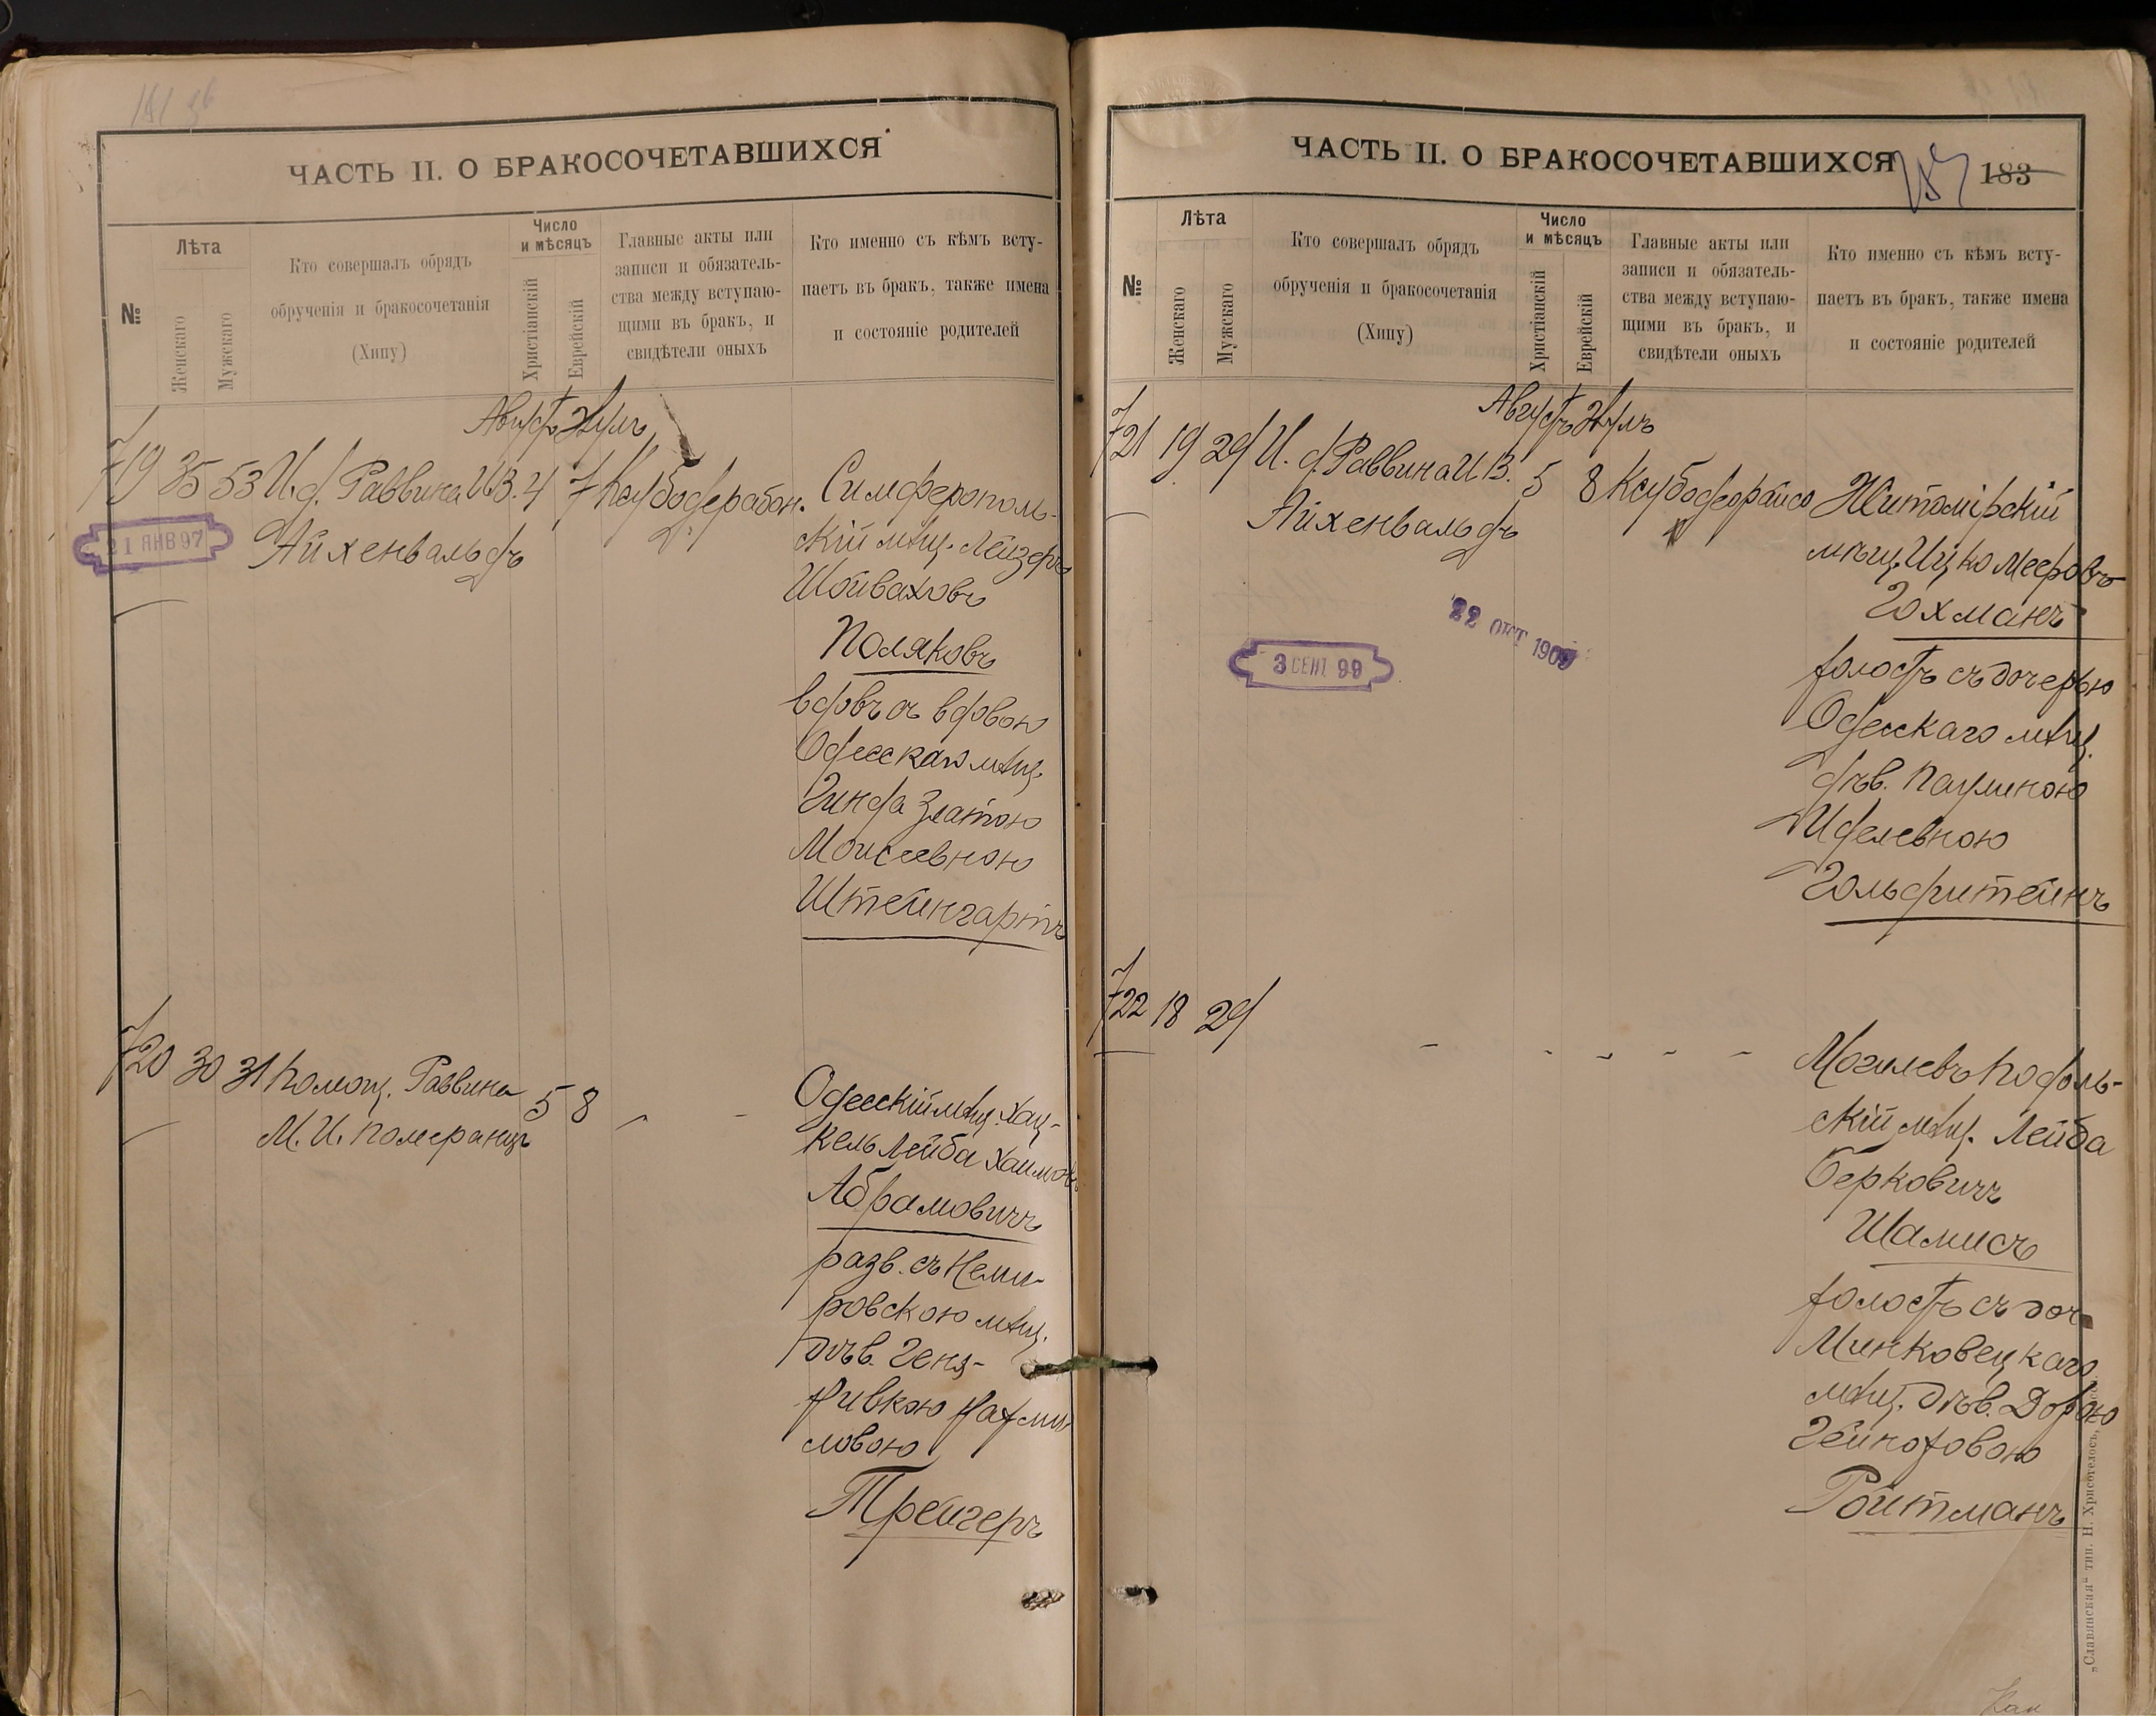 ЧАСТЬ II. О БРАКОСОЧЕТАВШИХСЯ
№
Лѣта
Женскаго
Мужскаго
Кто совершалъ обрядъ
обрученія и бракосочетанія
(Хипу)
Число
и мѣсяцъ
Христіанскій
Еврейскій
Главные акты или
записи и обязатель-
ства между вступаю-
щими въ бракъ, и
свидѣтели оныхъ
Кто именно съ кѣмъ всту-
паетъ въ бракъ, также имена
и состояніе родителей
Августъ
719 35 53 И. д. Раввина И.В. 4 7
Айхенвальдъ
21 ЯНВ 97
Симферополь-
скій мѣщ. Лейзеръ
Шойваховъ
Поляковъ
вдовъ съ вдовою
Одесскаго мѣщ.
Гинда Златою
Моисеевною
Штейнгартъ
720 30 31 Помощ. Раввина 5 8
М. И. Померанцъ
Одесскій мѣщ. Хац-
кель Лейба Хаимовъ
Абрамовичъ
разв. съ Неми-
ровскою мѣщ.
дѣв. Геня-
Ривкою
Трейгеръ
ЧАСТЬ II. О БРАКОСОЧЕТАВШИХСЯ
187 183
№
Лѣта
Женскаго
Мужскаго
Кто совершалъ обрядъ
обрученія и бракосочетанія
(Хипу)
Число
и мѣсяцъ
Христіанскій
Еврейскій
Главные акты или
записи и обязатель-
ства между вступаю-
щими въ бракъ, и
свидѣтели оныхъ
Кто именно съ кѣмъ всту-
паетъ въ бракъ, также имена
и состояніе родителей
Августъ
721 19 29 И. д. Раввина И.В. 5 8
Айхенвальдъ
22 ОКТ 1909
3 СЕНТ. 99
Житомірскій
мѣщ. Ицко Мееровъ
Гохманъ
холостъ съ дочерью
Одесскаго мѣщ.
дѣв. Паулиною
Иделевною
Гольдштейнъ
722 18 29
Могилевъ Подоль-
скій мѣщ. Лейба
Берковичъ
Шамисъ
холостъ съ доч-
Минковецкаго
мѣщ. дѣв. Дорою
Гейноховою
Ройтманъ
„Славянская“ тип. Н. Хрисогелосъ,